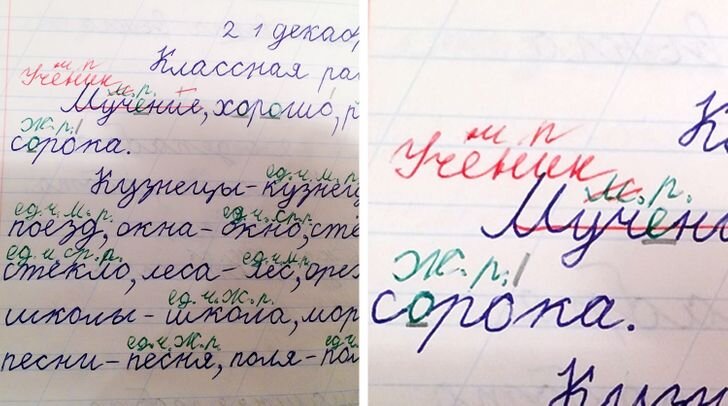 21 декаб
Классная ра
м р
Ученик м. р.
Мучение, хорошо, р
Ж. р.
сорока.
ед. ч. м. р.
Кузнецы - кузнец
ед. ч. м. р. ед. ч. ср. р.
поезд, окна - окно, стё
ед. ч. ср. р. ед. ч. м. р.
стекло, леса - лес, оре
ед. ч. Ж. р.
школы - школа, мор
ед. ч. Ж. р. ед. ч
песни - песня, поля - пол
К
м р
Ученик
м. р.
Мучени
Ж. р.
сорока.
Кузн